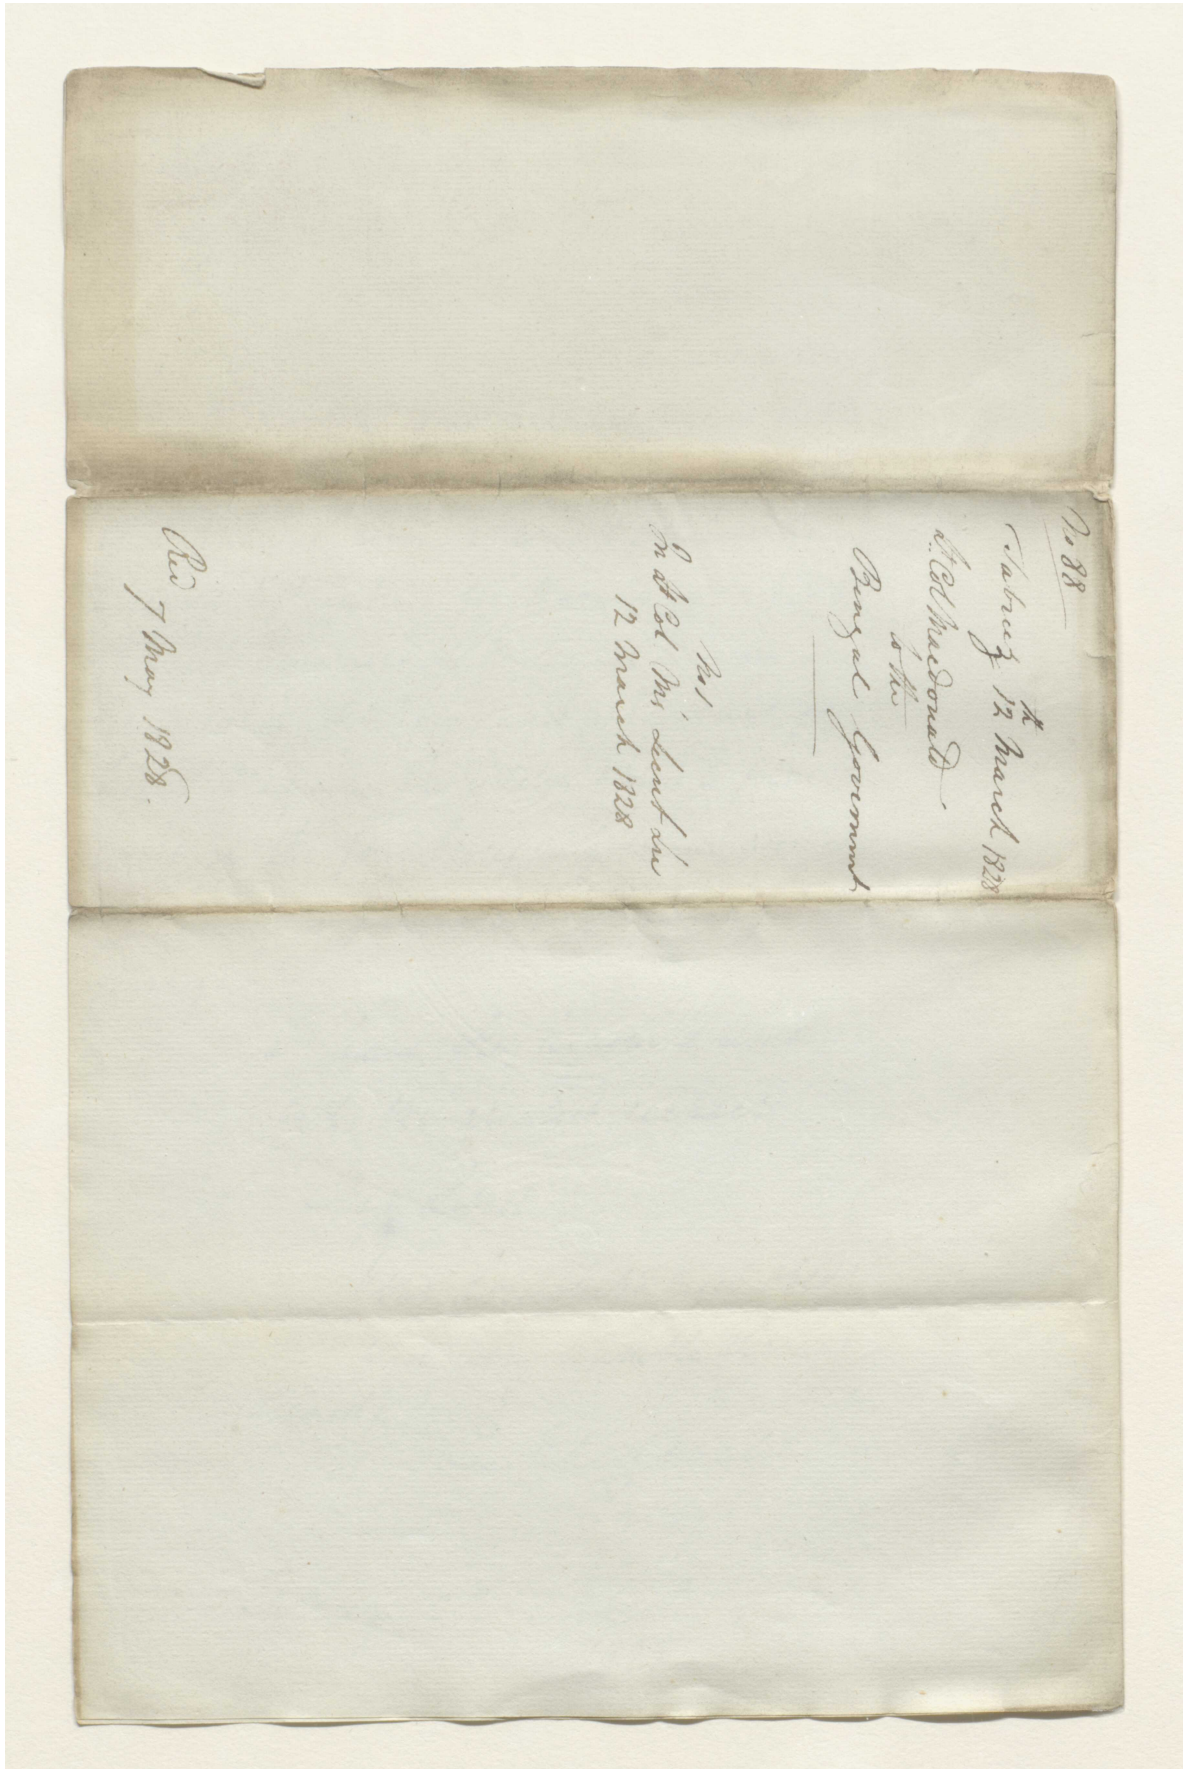 No 88
Tabreez 12th March 1828
Lt. Col Macdonald
to the
Bengal Governmnt
No 1
In Lt Col Ms
12 March 1828
Red 7 May 1828.